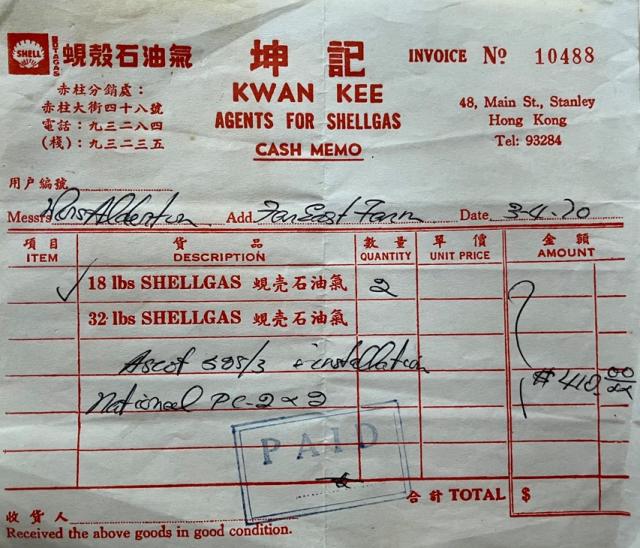 SHELL
BUTAGAS
蜆殼石油氣
坤記
INVOICE Nº 10488
赤柱分銷處：
KWAN KEE
48, Main St., Stanley
赤柱大街四十八號
AGENTS FOR SHELLGAS
Hong Kong
電話：九三二八四
Tel: 93284
(棧)：九三二三五
CASH MEMO
用户編號
Messrs Add. Far East Farm Date 3-4-70
項目 貨品 數量 單價 金額
ITEM DESCRIPTION QUANTITY UNIT PRICE AMOUNT
✓ 18 lbs SHELLGAS 蜆壳石油氣 2
32 lbs SHELLGAS 蜆壳石油氣
Ascot installation
$410.00
National PC-2 x 2
PAID
合計 TOTAL $
收貨人
Received the above goods in good condition.